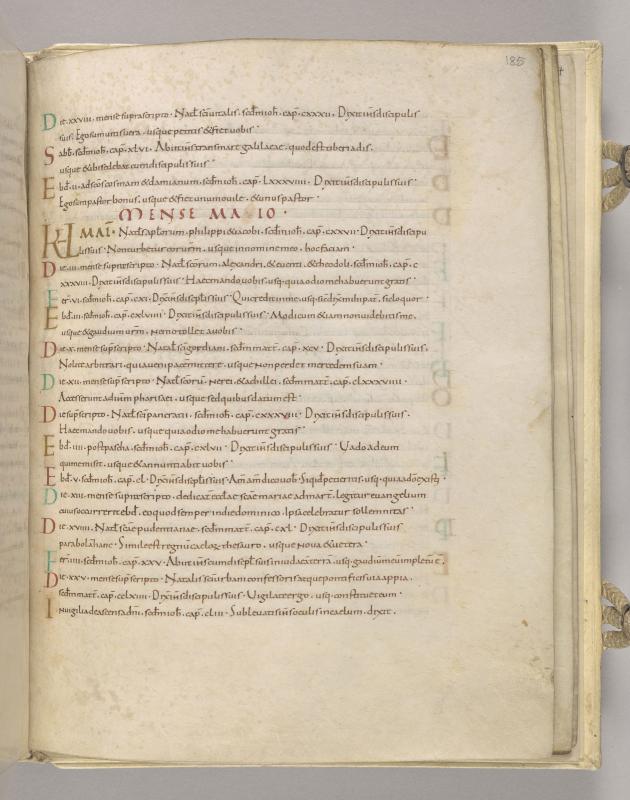 185
Die. xxviii. mense suprascripto. Nat̄ sc̄i vitalis. sec̄d ioh̄. cap̄. cxxxii. Dixit ih̄s discipulis
suis. Ego sum vitis vera. usque petitis & fiet vobis.
Sabb̄. sec̄d ioh̄. cap̄. xlvi. Abiit ih̄s trans mare galilaeae. quod est tiberiadis.
usque & ibi sedebat cum discipulis suis.
Ebd̄. ii. ad sc̄os cosmam & damianum. sec̄d ioh̄. cap̄. lxxxviiii. Dixit ih̄s discipulis suis.
Ego sum pastor bonus. usque & fiet unum ovile. & unus pastor.
MENSE MAIO.
KL MAI. Nat̄ ap̄lorum. philippi & iacobi. sec̄d ioh̄. cap̄. cxxvii. Dixit ih̄s discipu
lis suis. Non turbetur cor vr̄m. usque in nomine meo. hoc faciam.
Die. iii. mense suprascripto. Nat̄ sc̄orum. Alexandri. & eventi. & theodoli. sec̄d ioh̄. cap̄. c
xxxviii. Dixit ih̄s discipulis suis. Haec mando vobis. usq; quia odio me habuerunt gratis.
Fer̄. vi. sec̄d ioh̄. cap̄. cxi. Dixit ih̄s discip̄lis suis. Qui credit in me. usq; sic dix̄ mihi pat̄. sic loquor.
Ebd̄. iii. sec̄d ioh̄. cap̄. cxlviiii. Dixit ih̄s discipulis suis. Modicum & iam non videbitis me.
usque & gaudium vr̄m. nemo tollet a vobis.
Die. x. mense sup̄scripto. Natal̄ sc̄i gordiani. sec̄d matt̄. cap̄. xcv. Dixit ih̄s discipulis suis.
Nolite arbitrari. quia veni pacem mittere. usque non perdet mercedem suam.
Die. xii. mense sup̄scripto. Nat̄ sc̄orū. Nerei. & achillei. sec̄d matt̄. cap̄. clxxxviiii.
Accesserunt ad ih̄m pharisaei. usque sed quibus datum est.
Die suprscripto. Nat̄ sc̄i pancratii. sec̄d ioh̄. cap̄. cxxxviii. Dixit ih̄s discipulis suis.
Haec mando vobis. usque quia odio me habuerunt gratis.
Ebd̄. iiii. post pascha. sec̄d ioh̄. cap̄. cxlvii. Dixit ih̄s discipulis suis. Vado ad eum
qui me misit. usque & annuntiabit vobis.
Ebd̄. v. sec̄d ioh̄. cap̄. cl. Dix̄ ih̄s discip̄lis suis. Am̄ am̄ dico vob̄. Si quid petieritis. usq; quia a dō existi.
Die. xiii. mense suprascripto. dedicat̄ eccl̄ae sc̄ae mariae ad mart̄. legitur evangelium
cuius occurrerit ebd̄. eo quod semper in die dominico. ipsa celebratur sollemnitas.
Die. xviiii. Nat̄ sc̄ae pudentianae. sec̄d matt̄. cap̄. cxl. Dixit ih̄s discipulis suis
parabolā hanc. Simile est regnū caeloꝝ. thesauro. usque nova & vetera.
Fer̄. iiii. sec̄d ioh̄. cap̄. xxv. Abiit ih̄s cum discip̄lis suis in iudaeā terrā. usq; gaudiū meū impletū ē.
Die. xxv. mense sup̄scripto. Natalis sc̄i urbani confessoris atque pontificis via appia.
sec̄d matt̄. cap̄. cclxiiii. Dixit ih̄s discipulis suis. Vigilate ergo. usq; constituet eum.
In vigilia de ascensa dn̄i. sec̄d ioh̄. cap̄. cliii. Sublevatis ih̄s oculis in caelum. dixit.